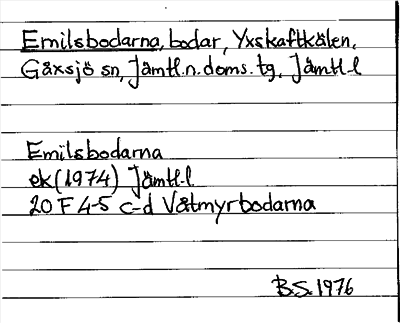 Emilsbodarna, bodar, Yxskaftkälen,
Gåxsjö sn, Jämtl.n.doms.tg, Jämtl-l
Emilsbodarna
ek (1974) Jämtl-l.
20 F 4-5 c-d Våtmyrbodarna
B.S. 1976